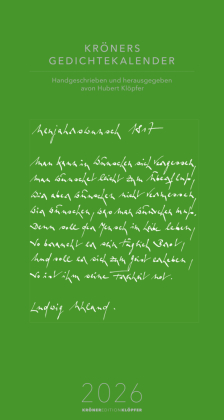 KRÖNERS
GEDICHTEKALENDER
Handgeschrieben und herausgegeben
avon Hubert Klöpfer
Neujahrswunsch 1817
Man kann im Wünschen sich vergessen,
Man wünschet leicht zum Überfluss,
Wir aber wünschen nicht vermessen,
Wir wünschen, was man wünschen muss.
Denn soll der Mensch im Leibe leben,
So brauchet er sein täglich Brot,
Und soll er sich zum Geist erheben,
So ist ihm seine Freiheit not.
Ludwig Uhland.
2026
KRÖNEREDITIONKLÖPFER